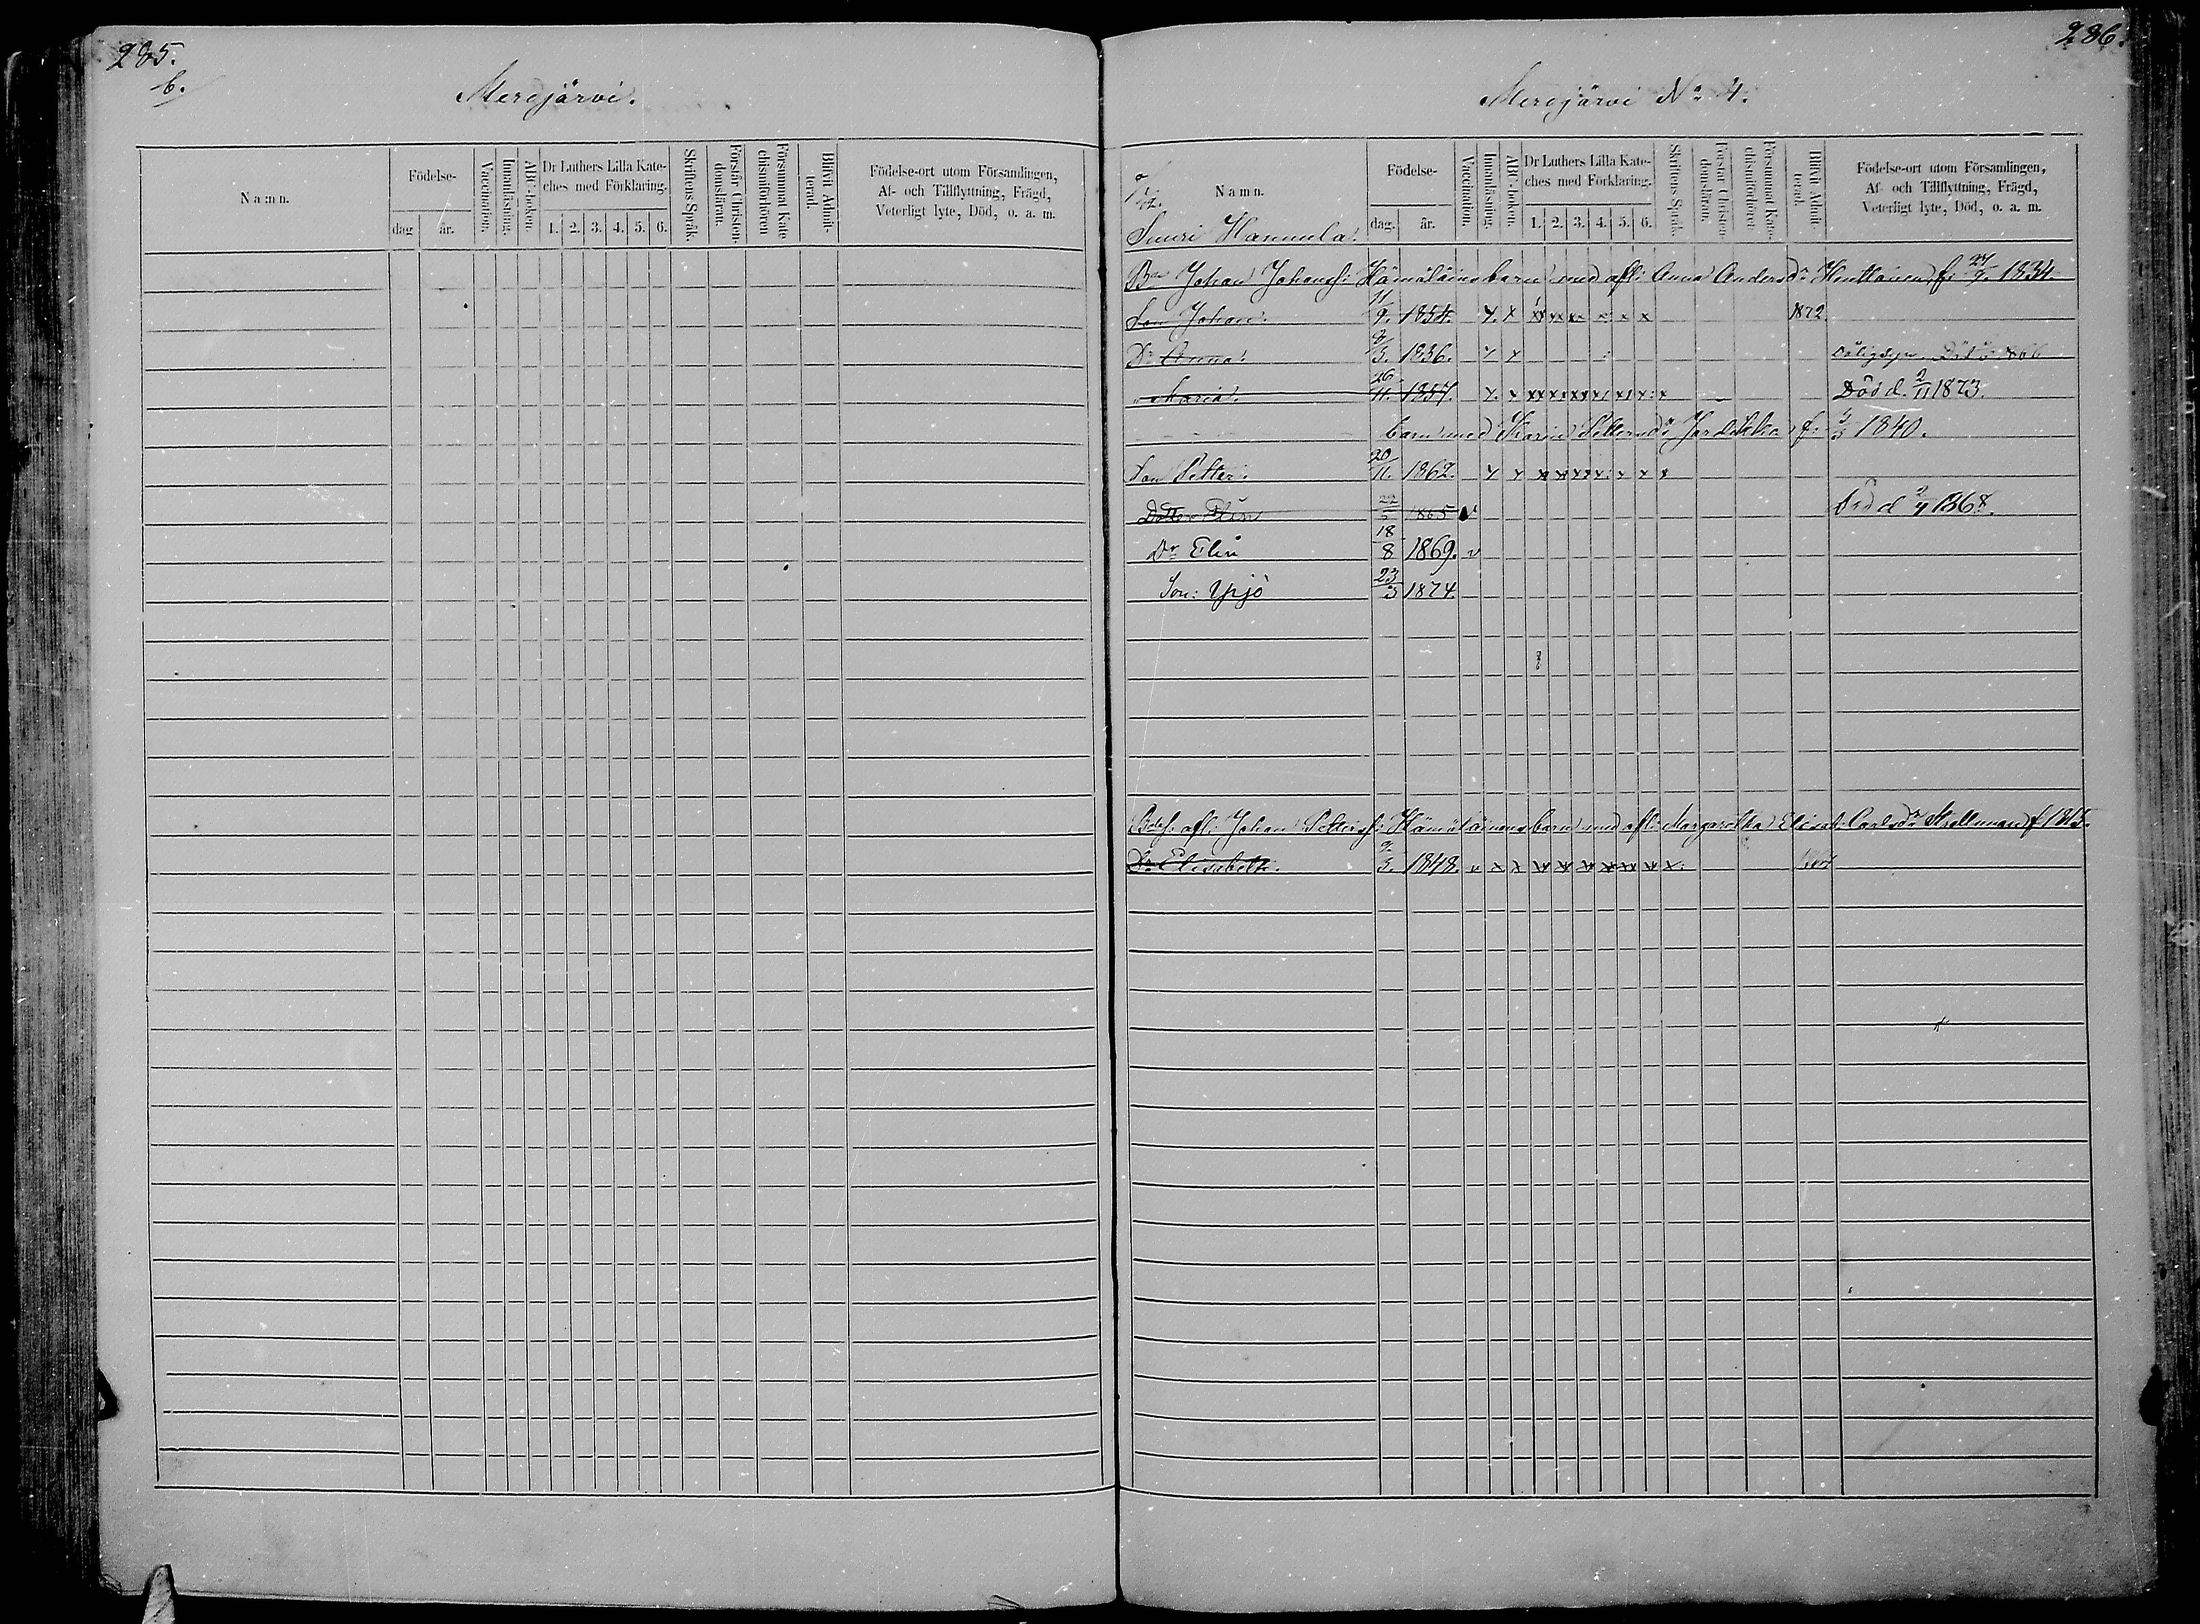 285.
6.
Merijärvi.
Namn.
Födelse-
dag
år.
Vaccination.
Innanläsning.
ABC-boken.
Dr Luthers Lilla Kate-
ches med Förklaring.
1. 2. 3. 4. 5. 6.
Skriftens Språk.
Förstår Christen-
domslärain.
Försummat Kate
chismiförhören
Blifvit Admit-
terad.
Födelse-ort utom Församlingen,
Af- och Tillflyttning, Frägd,
Veterligt lyte, Död, o. a. m.
286.
Merijärvi No 4.
Namn.
Suuri Hannula.
Födelse-
dag.
år.
Vaccination.
Innanläsning.
ABC-boken.
Dr Luthers Lilla Kate-
ches med Förklaring.
1. 2. 3. 4. 5. 6.
Skriftens Språk.
Förstår Christen-
domsläran.
Försummat Kate-
chismiförhören.
Blifvit Admit-
terad.
Födelse-ort utom Församlingen,
Af- och Tillflyttning, Frägd,
Veterligt lyte, Död, o. a. m.
Bn Johan Johanss: Hämäläins barn med afl: Anna Andersdr f. 1834.
Son Johan. 11/9. 1854. x. x 1872.
Dr Anna. 1856. x x
" Maria. 26/11. 1857. x. x xx xx xx x x x x Död d. 2/11 1873.
barn med Karin f. 1840.
Son Petter. 20/11. 1862. x x x x xx x x x x
Dotter Elin 22/5 1865 v Död d 1868.
Dr Elin 18/8 1869. v
Son: Yrjö 23/3 1874.
afl: Johan Petterss: Hämäläinens barn med afl: Margaretha Elisab: Carlsdr f
Dr Elisabeth. 9/3. 1848. v x x x x x x x x x